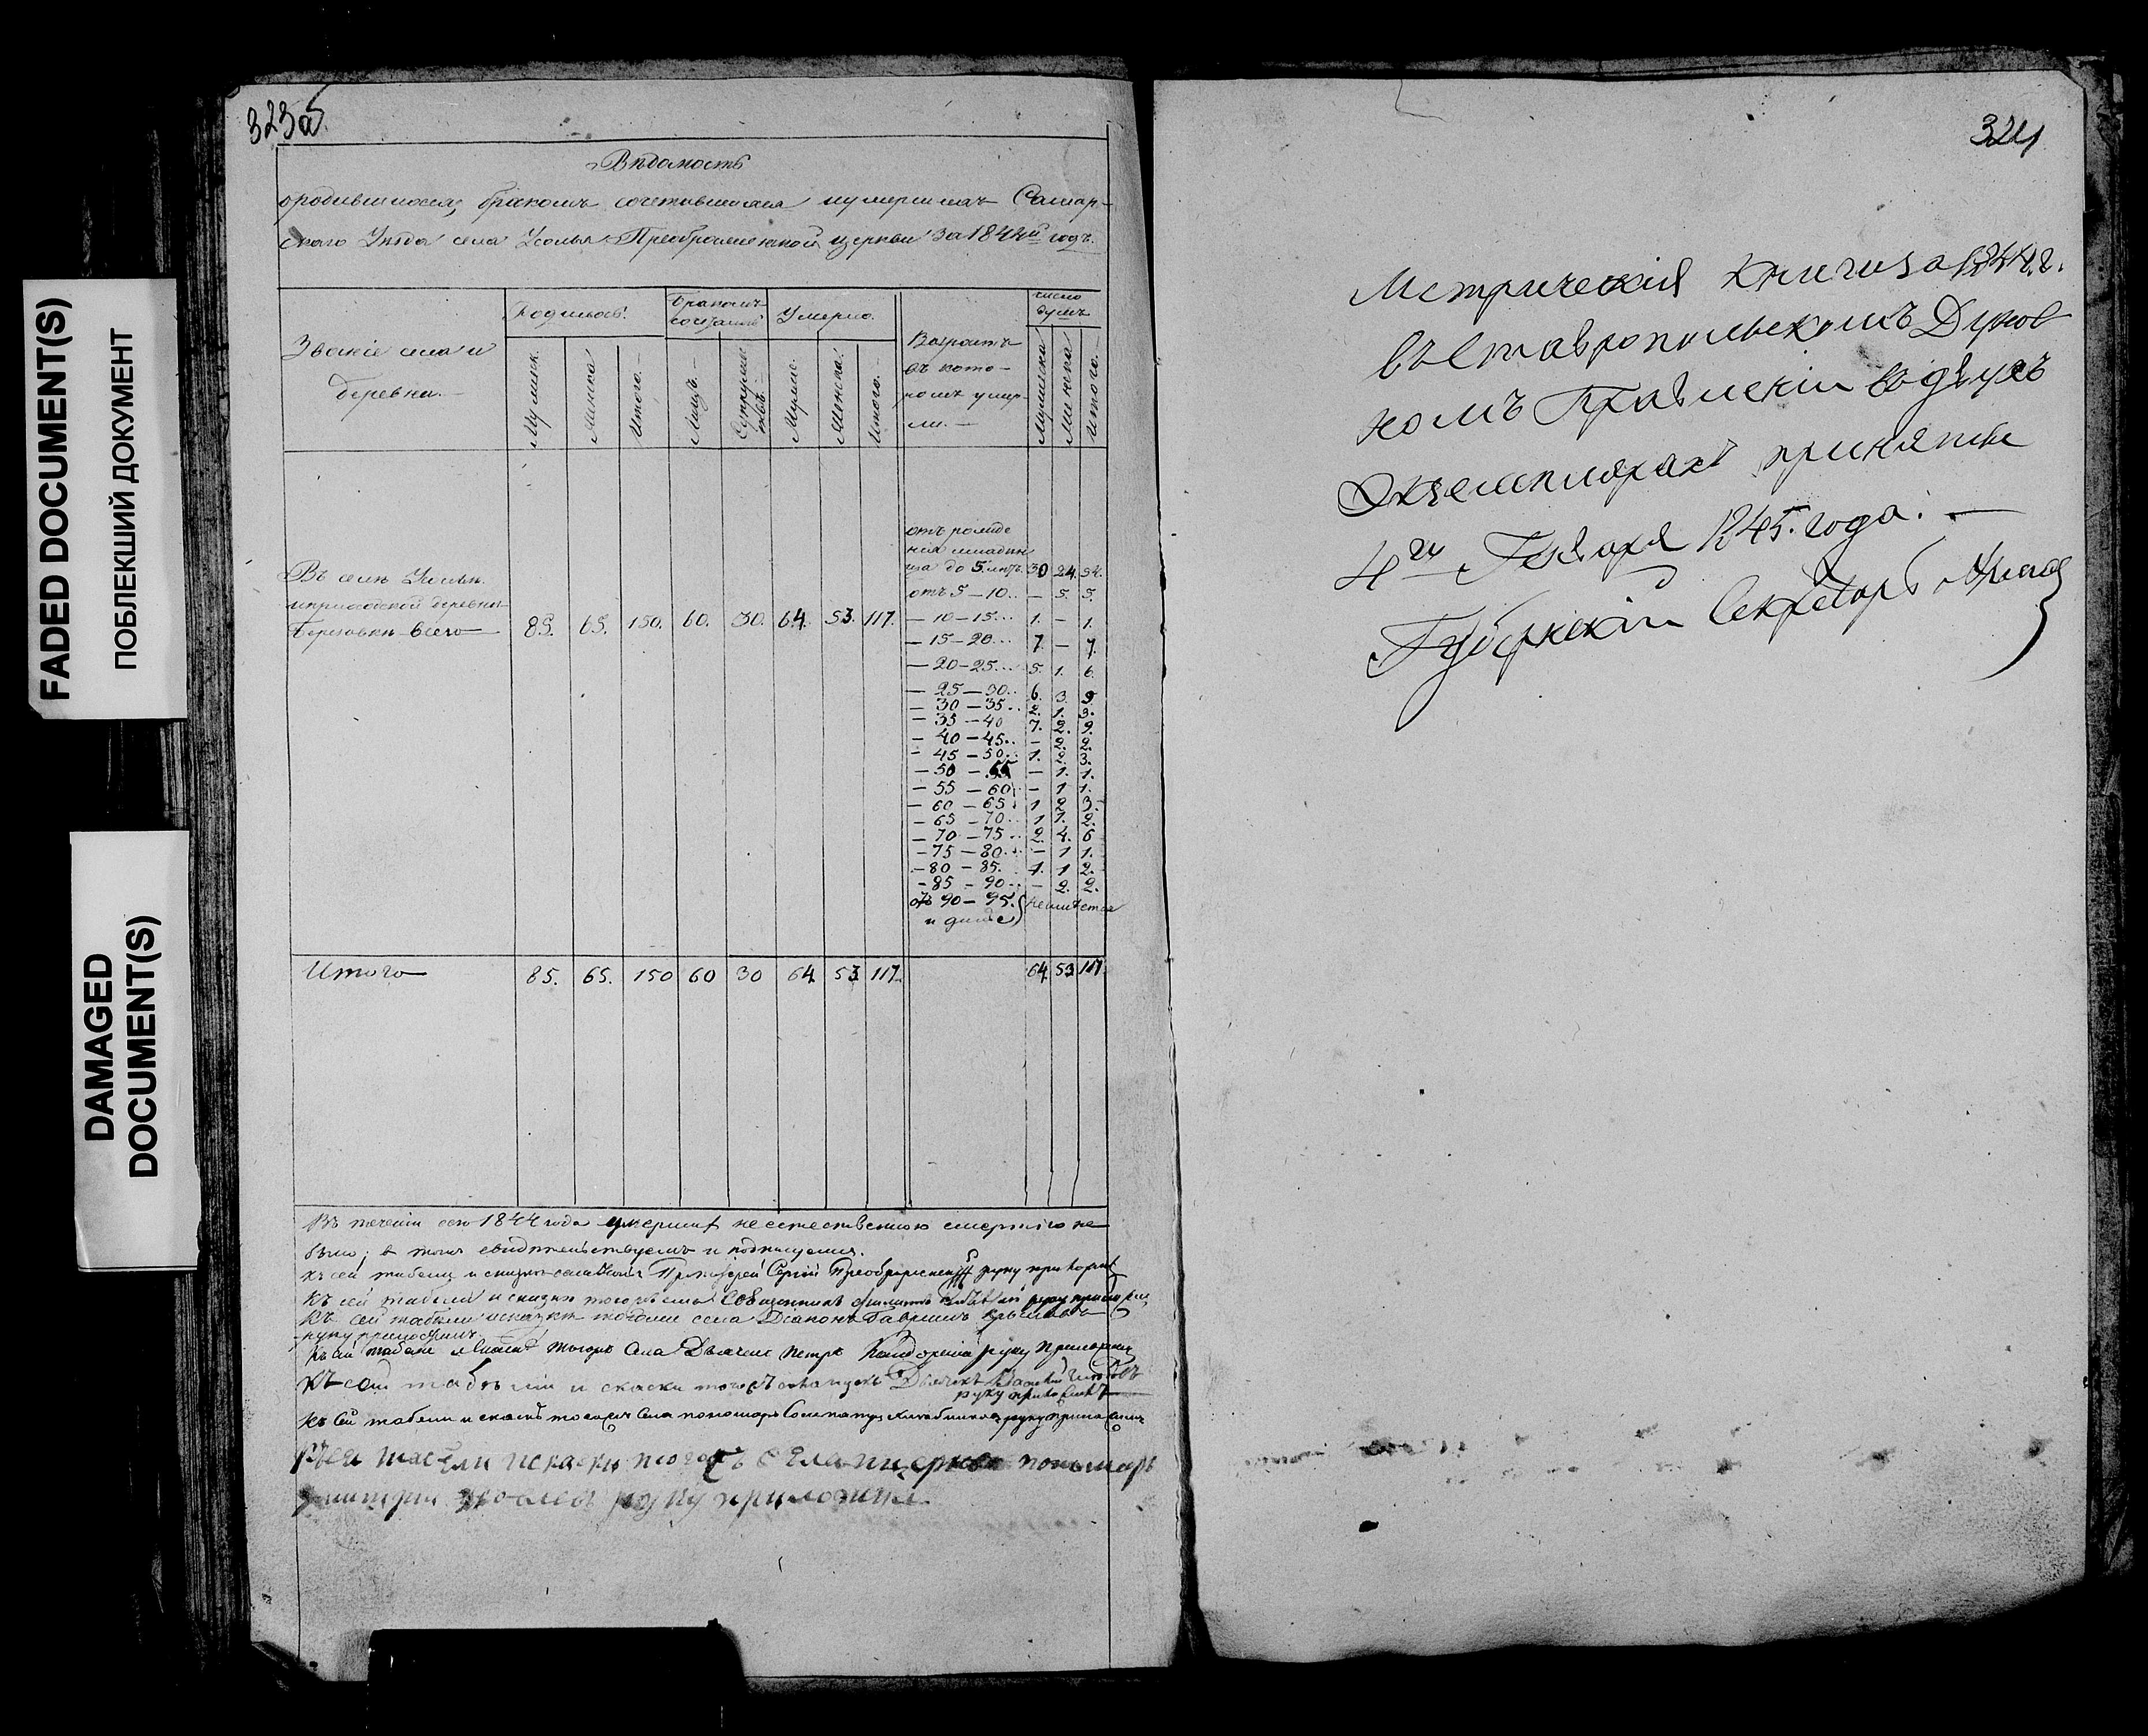 FADED DOCUMENT(S)
ПОБЛЕКШИЙ ДОКУМЕНТ
DAMAGED
DOCUMENT(S)
323а
Вѣдомость
ородившихся, бракомъ сочетавшихся иумершихъ Самар-
скаго Уѣзда села Усолья Преображенской церкви за 1844й годъ.
Званіе села и
деревни.
Родилось.
Мужеск.
Женска
Итого.
Бракомъ
сочетаний
Лицъ.
Супруже
ствъ.
Умерло.
Мужес.
Женска.
Итого.
Возрастъ
въ кото-
ромъ умер-
ли.
число
душъ
Мужеска
Женска
Итого.
Въ селѣ Усольи.
иприходской деревни
Березовки всего 85. 65. 150. 60. 30. 64. 53. 117.
отъ рожде
нія младен
ца до 5. лѣтъ 30 24. 54.
отъ 5 – 10.. – 5. 5.
– 10 – 15... 1. – 1.
– 15 – 20... 7. – 7.
– 20 – 25... 5. 1. 6.
– 25 – 30.. 6. 3. 9
– 30 – 35.. 2. 1. 3.
– 35 – 40 7. 2. 9.
– 40 – 45.. – 2. 2.
– 45 – 50.. 1. 2. 3.
– 50 – 55 – 1. 1.
– 55 – 60 – 1 1.
– 60 – 65 1 2 3.
– 65 – 70.. 1 1. 2.
– 70 – 75.. 2. 4. 6
– 75 – 80.. – 1 1.
– 80 – 85. 1. 1 2.
– 85 – 90.. – 2. 2.
отъ 90 – 95.
и далѣе
неимѣется
Итого 85. 65. 150 60 30 64 53 117. 64. 53 117.
Въ теченіи сего 1844 года умершихъ неестественною смертію не
было; в томъ свидѣтельствуемъ и подписуемся.
къ сей табели и Протоіерей Сергій Преображенскій руку приложилъ
Къ сей табели и сказки тогожъ села Священникъ руку приложилъ
Къ сей табели исказки тогожъ села Діаконъ Гавріилъ
руку приложилъ
Къ сей табели тогожъ села Дьячекъ Петръ руку Приложилъ
Къ сей табели и скаски тогожъ Дьячекъ
руку приложилъ
Къ сей табели и скаскѣ тогожъ села пономарь руку приложилъ
Къ сей табели искаски тогожъ села церкви пономарь
руку приложилъ.
324
Метрическія книги за 1844 г.
въ Ставропольскомъ Духов
номъ Правленіи въ двухъ
Экземплярахъ приняты
4го Генваря 1845. года. —
Губернскій Секретарь